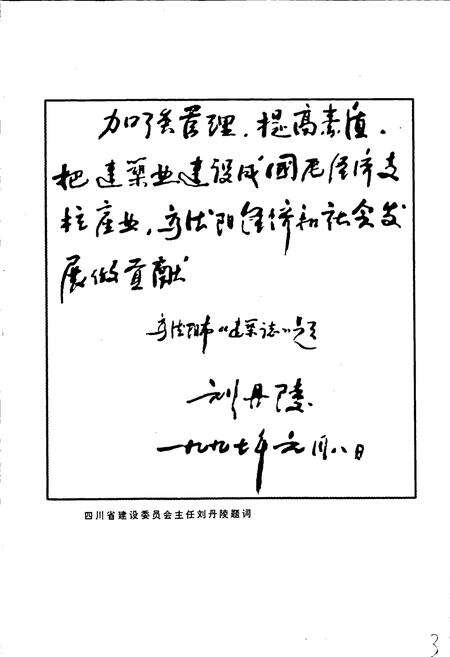 加强管理，提高素质，
把建筑业建设成国民经济支
柱产业，为德阳经济和社会发
展做贡献
为德阳市《建筑志》题
刘丹陵
一九九七年元月八日
四川省建设委员会主任刘丹陵题词
3